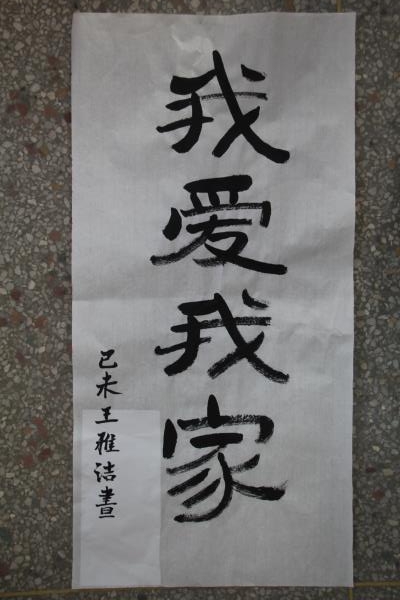 我爱我家
己未王雅洁書